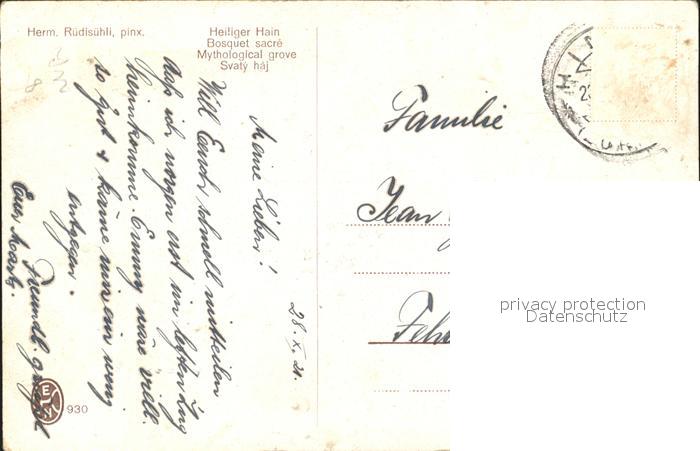 Herm. Rüdisühli, pinx.
Heiliger Hain
Bosquet sacré
Mythological grove
Svatý háj
28. X. 21.
Meine Lieben!
Will Euch schnell mitteilen
daß ich morgen erst im letzten Zug
heimkomme. Emmy wäre viell.
so gut & käme mir ein wenig
entgegen.
Freundl. grüßt
Euer
Familie
Jean
Feh
privacy protection
Datenschutz
930